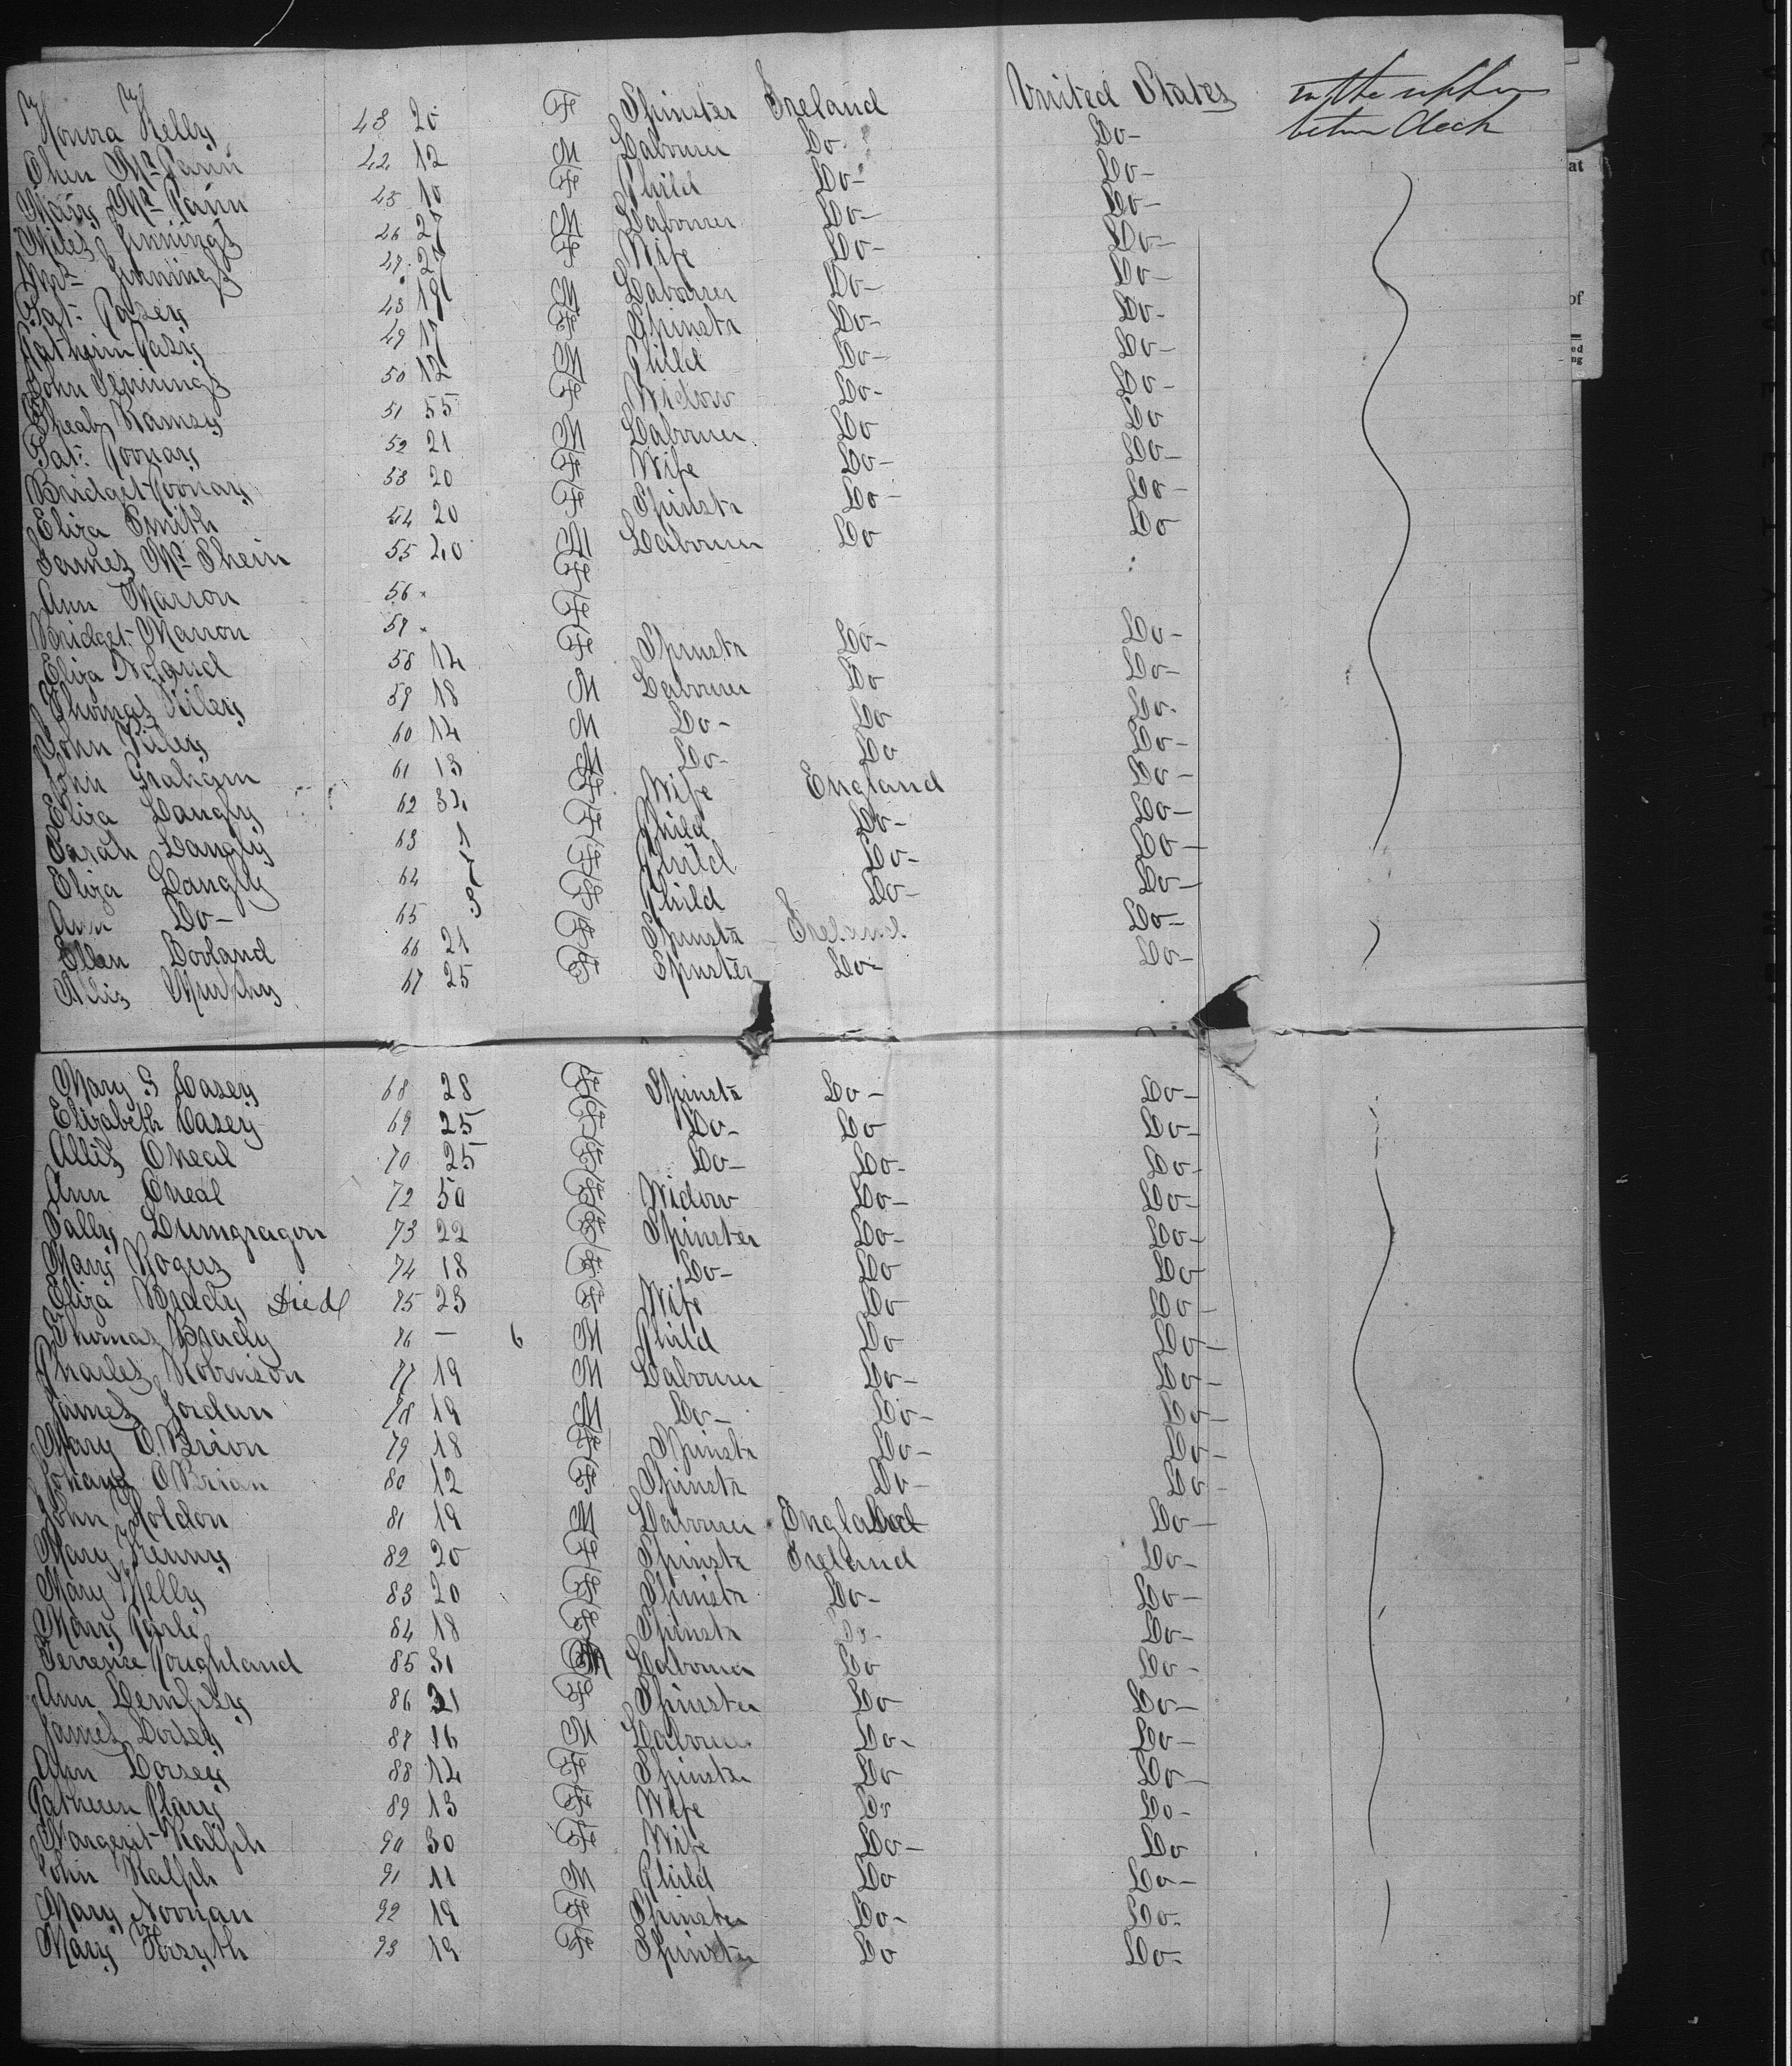 Honora Kelly 43 20 F Spinster Ireland United States in the upper
Ohen Mc Cann 44 12 M Labourer Do Do- between deck
Mary Mc Cann 45 10 F Child Do- Do-
Miles Jennings 46 27 M Labourer Do- Do-
Mrs Jennings 47 27 F Wife Do- Do-
Pat: Casey 48 19 M Labourer Do- Do-
Catherin Casy 49 17 F Spinstr Do- Do-
John Jennings 50 12 M Child Do- Do-
Ramsy 51 55 F Widow Do- Do-
Pat: Coonay 52 21 M Labourer Do Do
Bridget Coonay 53 20 F Wife Do- Do-
Eliza Smith 54 20 F Spinstr Do- Do-
James Mc Shein 55 40 M Labourer Do Do
Ann Marron 56 F
Bridget Marron 57 F
Eliza Noland 58 14 F Spinstr Do- Do-
Thomas Riley 59 18 M Labourer Do Do-
John Riley 60 14 M Do- Do Do-
John Graham 61 13 M Do- Do Do-
Eliza Langly 62 34 F Wife England Do-
Sarah Langly 63 F Child Do- Do-
Eliza Langly 64 F Child Do- Do-
Ann Do- 65 3 F Child Do- Do-
Ellen Dovland 66 21 F Spinstr Ireland Do-
Allis Murphy 67 25 F Spinster Do- Do-
Mary S Casey 68 28 F Spinstr Do- Do-
Elizabeth Casey 69 25 F Do- Do Do-
Allis Oneal 70 25 F Do- Do- Do-
Ann Oneal 72 50 F Widow Do- Do-
Sally Dumgragon 73 22 F Spinster Do- Do-
Mary Rogers 74 18 F Do- Do Do
Eliza Brady Died 75 23 F Wife Do Do-
Thomas Brady 76 - 6 M Child Do Do-
Charles Robinson 77 19 M Labourer Do- Do-
James Jordan 78 19 M Do- Do- Do-
Mary O Brion 79 18 F Spinstr Do- Do-
Johana O Brian 80 12 F Spinstr Do- Do-
John Holdon 81 19 M Labourer England Do-
Mary Kenny 82 20 F Spinstr Ireland Do-
Mary Kelly 83 20 F Spinstr Do- Do-
Mary Carle 84 18 F Spinstr Do- Do-
Terrence Coughland 85 31 M Labourer Do Do-
Ann Dempsy 86 21 F Spinster Do Do-
James Dorsey 87 16 M Labourer Do- Do-
Ann Dorsey 88 14 F Spinster Do Do-
Catheren Clary 89 13 F Wife Do Do-
Margerit Ralph 90 30 F Wife Do- Do
John Ralph 91 11 M Child Do Do-
Mary Noonan 92 19 F Spinster Do- Do-
Mary Forsyth 93 19 F Spinster Do Do-